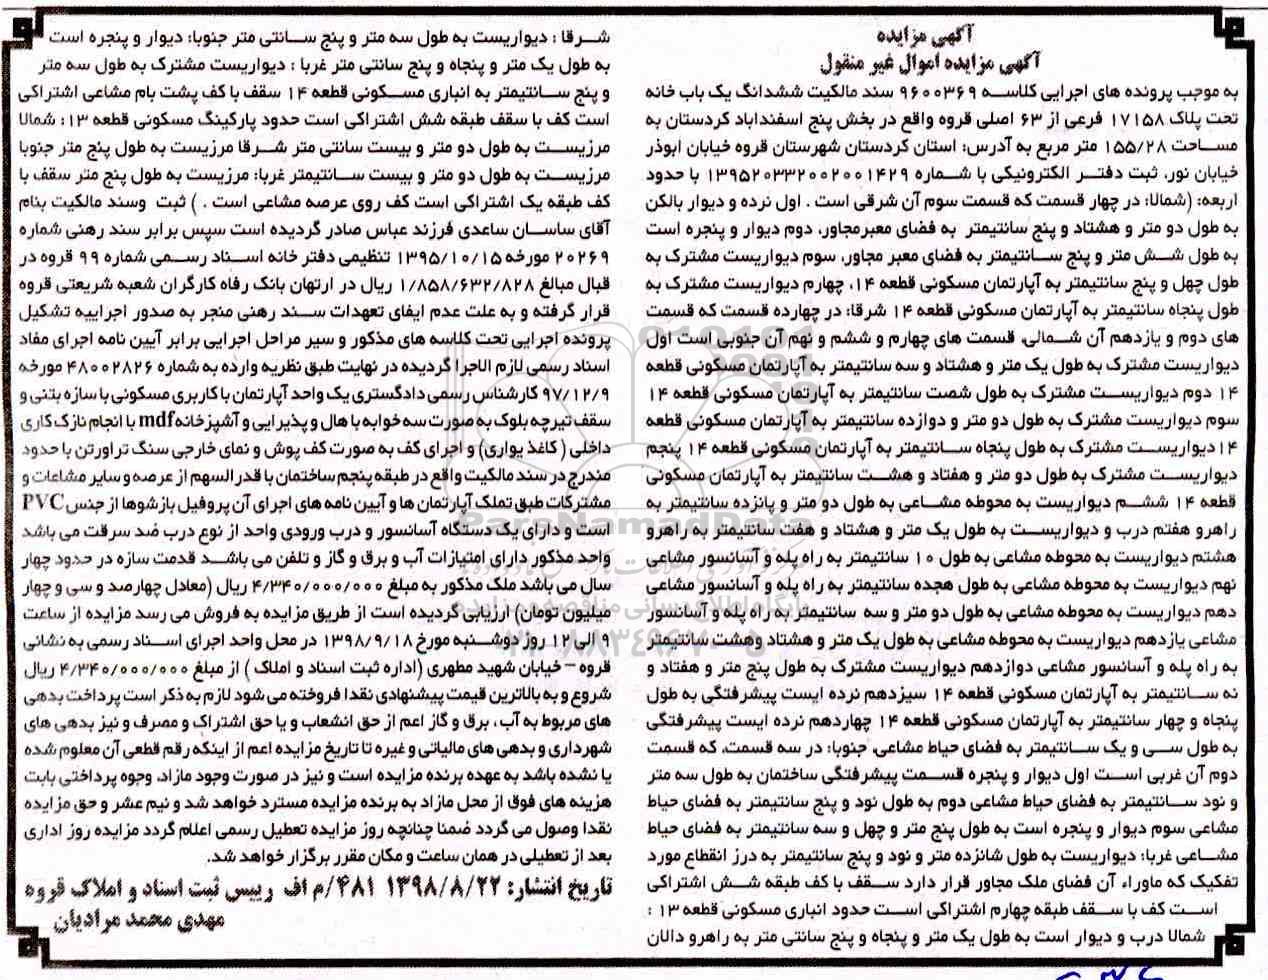 آگهی مزایده
آگهی مزایده اموال غیر منقول
به موجب پرونده های اجرایی کلاسه ۹۶۰۰۳۶۹ سند مالکیت ششدانگ یک باب خانه
تحت پلاک ۱۷۱۵۸ فرعی از ۶۳ اصلی قروه واقع در بخش پنج اسفنداباد کردستان به
مساحت ۱۵۵/۲۸ متر مربع به آدرس: استان کردستان شهرستان قروه خیابان ابوذر
خیابان نور، ثبت دفتر الکترونیکی با شماره ۱۳۹۵۲۰۳۳۲۰۰۲۰۰۱۴۲۹ با حدود
اربعه: (شمالا: در چهار قسمت که قسمت سوم آن شرقی است . اول نرده و دیوار بالکن
به طول دو متر و هشتاد و پنج سانتیمتر به فضای معبرمجاور، دوم دیوار و پنجره است
به طول شش متر و پنج سانتیمتر به فضای معبر مجاور، سوم دیواریست مشترک به
طول چهل و پنج سانتیمتر به آپارتمان مسکونی قطعه ۱۴، چهارم دیواریست مشترک به
طول پنجاه سانتیمتر به آپارتمان مسکونی قطعه ۱۴ شرقا: در چهارده قسمت که قسمت
های دوم و یازدهم آن شمالی، قسمت های چهارم و ششم و نهم آن جنوبی است اول
دیواریست مشترک به طول یک متر و هشتاد و سه سانتیمتر به آپارتمان مسکونی قطعه
۱۴ دوم دیواریست مشترک به طول شصت سانتیمتر به آپارتمان مسکونی قطعه ۱۴
سوم دیواریست مشترک به طول دو متر و دوازده سانتیمتر به آپارتمان مسکونی قطعه
۱۴دیواریست مشترک به طول پنجاه سانتیمتر به آپارتمان مسکونی قطعه ۱۴ پنجم
دیواریست مشترک به طول دو متر و هفتاد و هشت سانتیمتر به آپارتمان مسکونی
قطعه ۱۴ ششم دیواریست به محوطه مشاعی به طول دو متر و پانزده سانتیمتر به
راهرو هفتم درب و دیواریست به طول یک متر و هشتاد و هفت سانتیمتر به راهرو
هشتم دیواریست به محوطه مشاعی به طول ۱۰ سانتیمتر به راه پله و آسانسور مشاعی
نهم دیواریست به محوطه مشاعی به طول هجده سانتیمتر به راه پله و آسانسور مشاعی
دهم دیواریست به محوطه مشاعی به طول دو متر و سه سانتیمتر به راه پله و آسانسور
مشاعی یازدهم دیواریست به محوطه مشاعی به طول یک متر و هشتاد وهشت سانتیمتر
به راه پله و آسانسور مشاعی دوازدهم دیواریست مشترک به طول پنج متر و هفتاد و
نه سانتیمتر به آپارتمان مسکونی قطعه ۱۴ سیزدهم نرده ایست پیشرفتگی به طول
پنجاه و چهار سانتیمتر به آپارتمان مسکونی قطعه ۱۴ چهاردهم نرده ایست پیشرفتگی
به طول سی و یک سانتیمتر به فضای حیاط مشاعی، جنوبا: در سه قسمت، که قسمت
دوم آن غربی است اول دیوار و پنجره قسمت پیشرفتگی ساختمان به طول سه متر
و نود سانتیمتر به فضای حیاط مشاعی دوم به طول نود و پنج سانتیمتر به فضای حیاط
مشاعی سوم دیوار و پنجره است به طول پنج متر و چهل و سه سانتیمتر به فضای حیاط
مشاعی غربا: دیواریست به طول شانزده متر و نود و پنج سانتیمتر به درز انقطاع مورد
تفکیک که ماوراء آن فضای ملک مجاور قرار دارد سقف با کف طبقه شش اشتراکی
است کف با سقف طبقه چهارم اشتراکی است حدود انباری مسکونی قطعه ۱۳ :
شمالا درب و دیوار است به طول یک متر و پنجاه و پنج سانتی متر به راهرو دالان
شرقا : دیواریست به طول سه متر و پنج سانتی متر جنوبا: دیوار و پنجره است
به طول یک متر و پنجاه و پنج سانتی متر غربا : دیواریست مشترک به طول سه متر
و پنج سانتیمتر به انباری مسکونی قطعه ۱۴ سقف با کف پشت بام مشاعی اشتراکی
است کف با سقف طبقه شش اشتراکی است حدود پارکینگ مسکونی قطعه ۱۳: شمالا
مرزیست به طول دو متر و بیست سانتی متر شرقا مرزیست به طول پنج متر جنوبا
مرزیست به طول دو متر و بیست سانتیمتر غربا: مرزیست به طول پنج متر سقف با
کف طبقه یک اشتراکی است کف روی عرصه مشاعی است . ) ثبت وسند مالکیت بنام
آقای ساسان ساعدی فرزند عباس صادر گردیده است سپس برابر سند رهنی شماره
۲۰۲۶۹ مورخه ۱۳۹۵/۱۰/۱۵ تنظیمی دفتر خانه اسناد رسمی شماره ۹۹ قروه در
قبال مبالغ ۱/۸۵۸/۶۳۲/۸۲۸ ریال در ارتهان بانک رفاه کارگران شعبه شریعتی قروه
قرار گرفته و به علت عدم ایفای تعهدات سند رهنی منجر به صدور اجراییه تشکیل
پرونده اجرایی تحت کلاسه های مذکور و سیر مراحل اجرایی برابر آیین نامه اجرای مفاد
اسناد رسمی لازم الاجرا گردیده در نهایت طبق نظریه وارده به شماره ۴۸۰۰۲۸۲۶ مورخه
۹۷/۱۲/۹ کارشناس رسمی دادگستری یک واحد آپارتمان با کاربری مسکونی با سازه بتنی و
سقف تیرچه بلوک به صورت سه خوابه با هال و پذیرایی و آشپزخانه mdf با انجام نازک کاری
داخلی ( کاغذ یواری) و اجرای کف به صورت کف پوش و نمای خارجی سنگ تراورتن با حدود
مندرج در سند مالکیت واقع در طبقه پنجم ساختمان با قدر السهم از عرصه و سایر مشاعات و
مشترکات طبق تملک آپارتمان ها و آیین نامه های اجرای آن پروفیل بازشوها از جنس PVC
است و دارای یک دستگاه آسانسور و درب ورودی واحد از نوع درب ضد سرقت می باشد
واحد مذکور دارای امتیازات آب و برق و گاز و تلفن می باشد قدمت سازه در حدود چهار
سال می باشد ملک مذکور به مبلغ ۴/۳۴۰/۰۰۰/۰۰۰ ریال (معادل چهارصد و سی و چهار
میلیون تومان) ارزیابی گردیده است از طریق مزایده به فروش می رسد مزایده از ساعت
۹ الی ۱۲ روز دوشنبه مورخ ۱۳۹۸/۹/۱۸ در محل واحد اجرای اسناد رسمی به نشانی
قروه – خیابان شهید مطهری (اداره ثبت اسناد و املاک ) از مبلغ ۴/۳۴۰/۰۰۰/۰۰۰ ریال
شروع و به بالاترین قیمت پیشنهادی نقدا فروخته می شود لازم به ذکر است پرداخت بدهی
های مربوط به آب، برق و گاز اعم از حق انشعاب و یا حق اشتراک و مصرف و نیز بدهی های
شهرداری و بدهی های مالیاتی و غیره تا تاریخ مزایده اعم از اینکه رقم قطعی آن معلوم شده
یا نشده باشد به عهده برنده مزایده است و نیز در صورت وجود مازاد، وجوه پرداختی بابت
هزینه های فوق از محل مازاد به برنده مزایده مسترد خواهد شد و نیم عشر و حق مزایده
نقدا وصول می گردد ضمنا چنانچه روز مزایده تعطیل رسمی اعلام گردد مزایده روز اداری
بعد از تعطیلی در همان ساعت و مکان مقرر برگزار خواهد شد.
تاریخ انتشار: ۱۳۹۸/۸/۲۲ ۴۸۱/م اف رییس ثبت اسناد و املاک قروه
مهدی محمد مرادیان
ParsNamadData
پایگاه اطلاع رسانی مناقصه و مزایده
۰۲۱-۸۸۳۴۹۶۷۰-۵